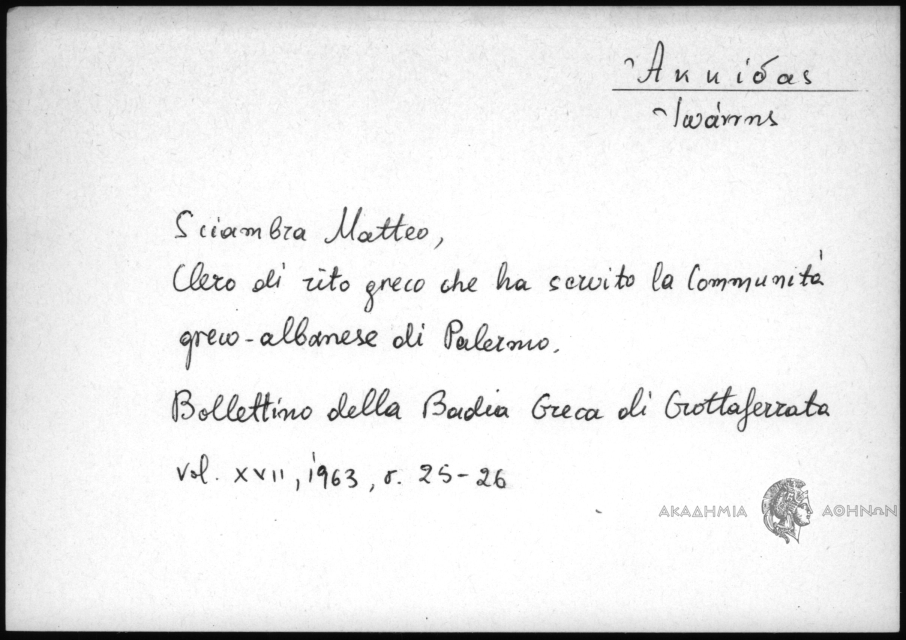 Ἀκκίδας
Ἰωάννης
Sciambra Matteo,
Clero di rito greco che ha servito la Communità
greco-albanese di Palermo.
Bollettino della Badia Greca di Grottaferrata
vol. XVII, 1963, σ. 25-26
ΑΚΑΔΗΜΙΑ ΑΘΗΝΩΝ